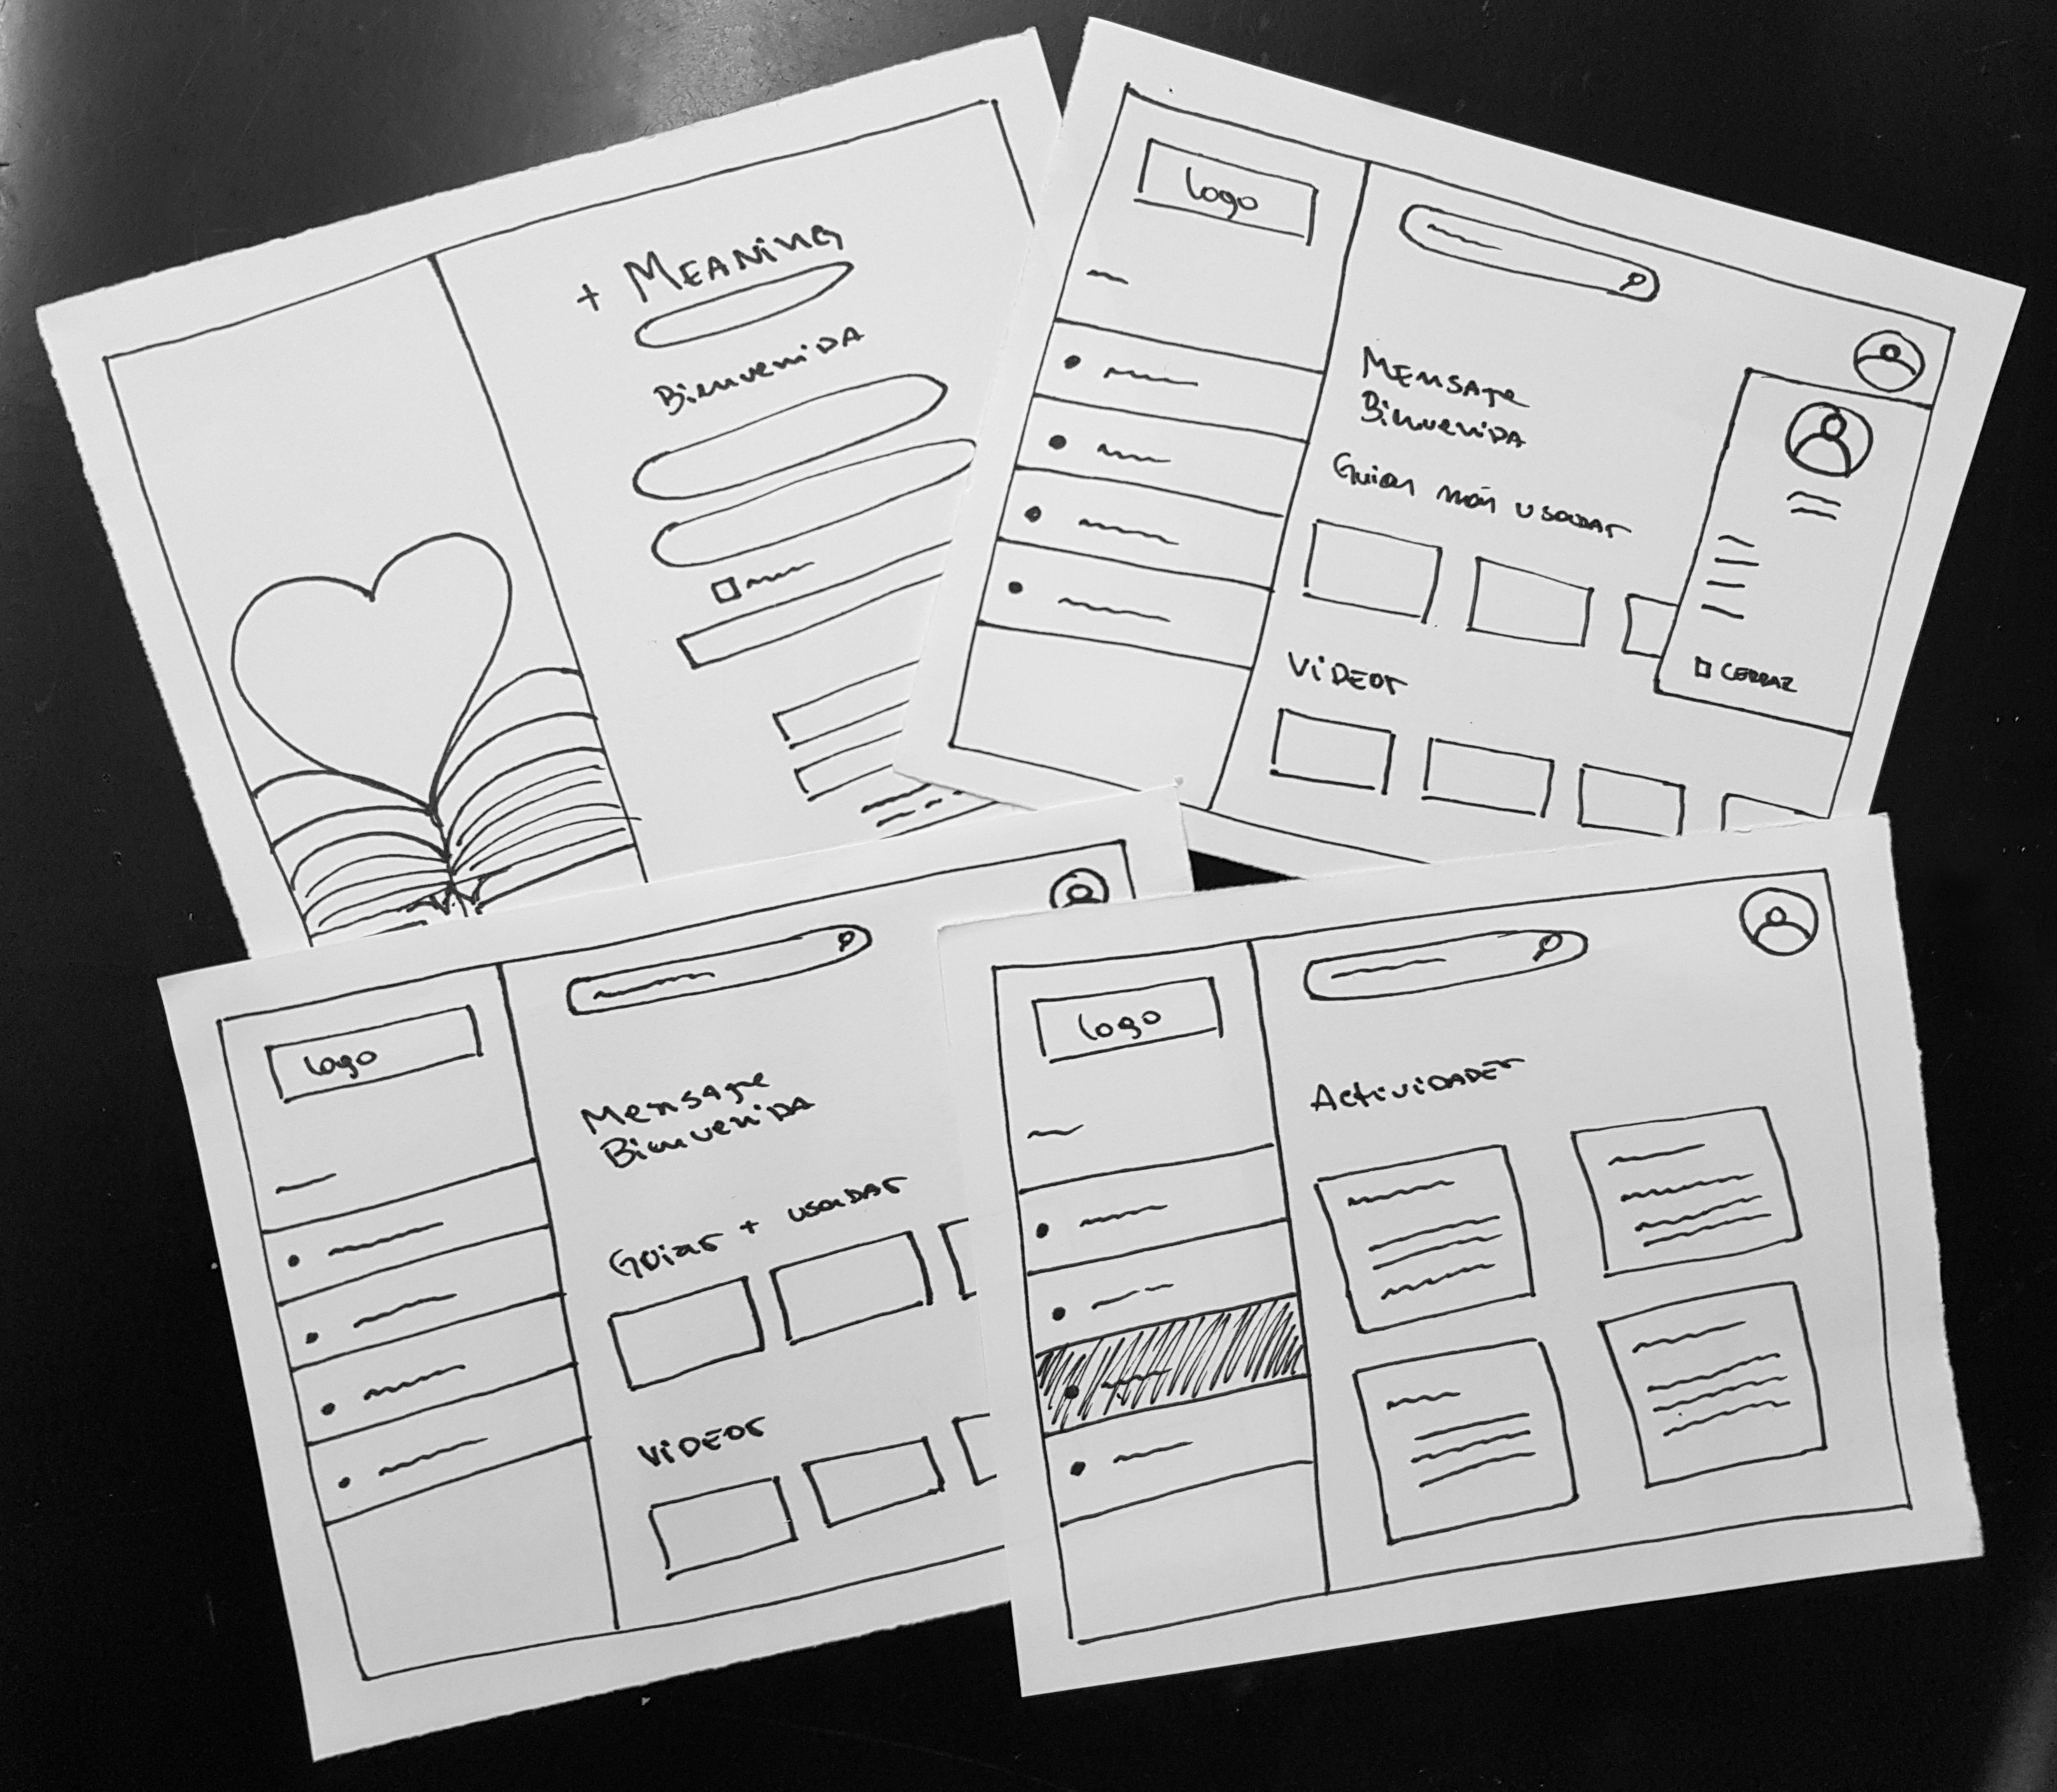 + MEANING
Bienvenida
Logo
Mensaje
Bienvenida
Guias más usadas
VIDEOS
CERRAR
Logo
Mensaje
Bienvenida
Guias + usadas
VIDEOS
Logo
Actividades